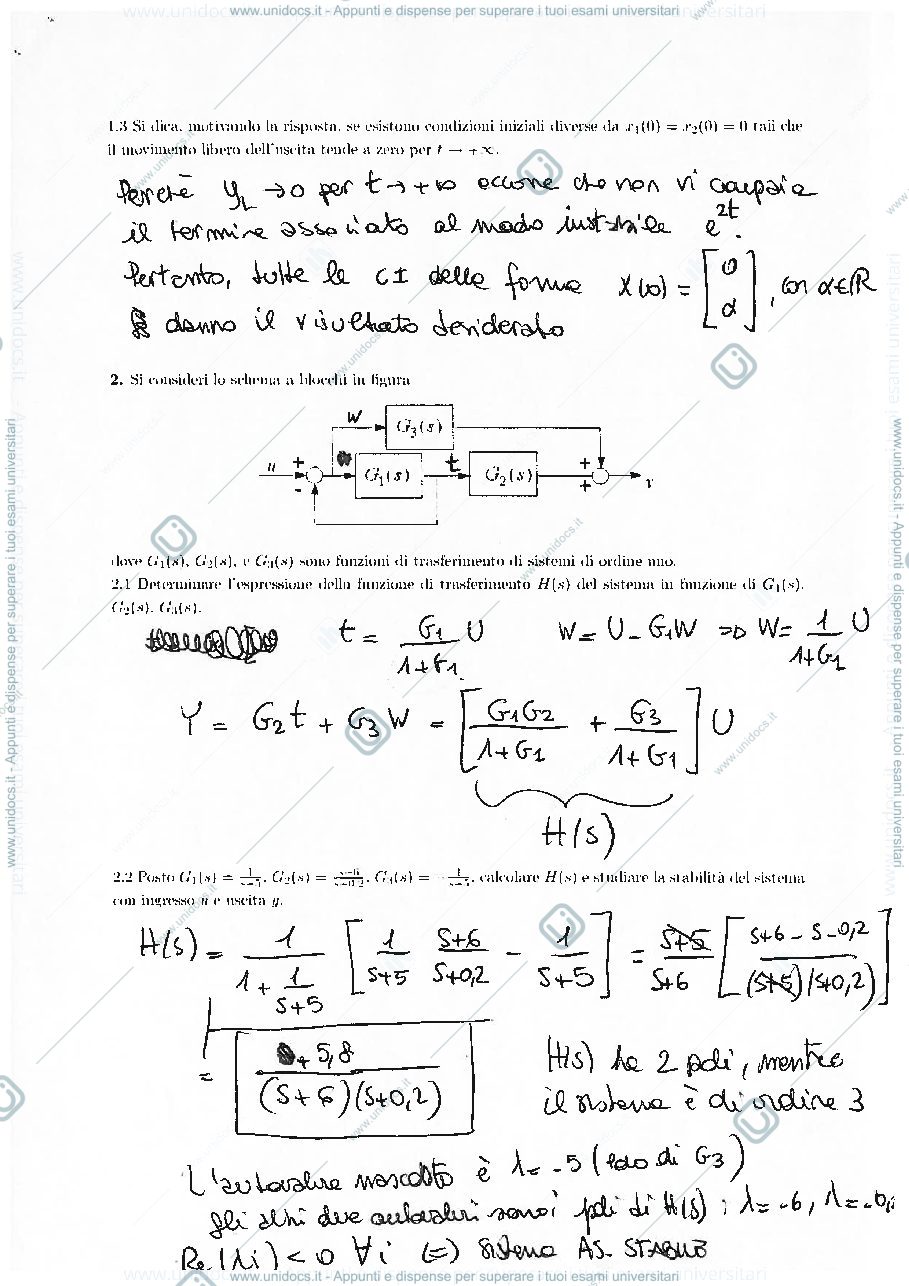 www.unidocs.it - Appunti e dispense per superare i tuoi esami universitari
1.3 Si dica, motivando la risposta, se esistono condizioni iniziali diverse da x₁(0) = x₂(0) = 0 tali che
il movimento libero dell'uscita tende a zero per t → +∞.
Perché y_L → 0 per t → +∞ occorre che non vi compaia
il termine associato al modo instabile e^{2t}.
Pertanto, tutte le CI della forma X(0) = [0 α], con α∈ℝ
danno il risultato desiderato
2. Si consideri lo schema a blocchi in figura
W G₃(s)
u + - G₁(s) t G₂(s) + + y
dove G₁(s), G₂(s), e G₃(s) sono funzioni di trasferimento di sistemi di ordine uno.
2.1 Determinare l'espressione della funzione di trasferimento H(s) del sistema in funzione di G₁(s),
G₂(s), G₃(s).
t = G₁/(1+G₁) U W = U - G₁W => W = 1/(1+G₁) U
Y = G₂t + G₃W = [G₁G₂/(1+G₁) + G₃/(1+G₁)] U
H(s)
2.2 Posto G₁(s) = 1/(s+5), G₂(s) = (s+6)/(s+0.2), G₃(s) = -1/(s+5), calcolare H(s) e studiare la stabilità del sistema
con ingresso u e uscita y.
H(s) = 1/(1 + 1/(s+5)) [1/(s+5) (s+6)/(s+0,2) - 1/(s+5)] = (s+5)/(s+6) [(s+6-s-0,2)/((s+5)(s+0,2))]
= 5,8/((s+6)(s+0,2))
H(s) ha 2 poli, mentre
il sistema è di ordine 3
L'autovalore nascosto è λ = -5 (polo di G₃)
gli altri due autovalori sono i poli di H(s) : λ = -6, λ = -0,
Re(λi) < 0 ∀ i (=) sistema AS. STABILE
www.unidocs.it - Appunti e dispense per superare i tuoi esami universitari